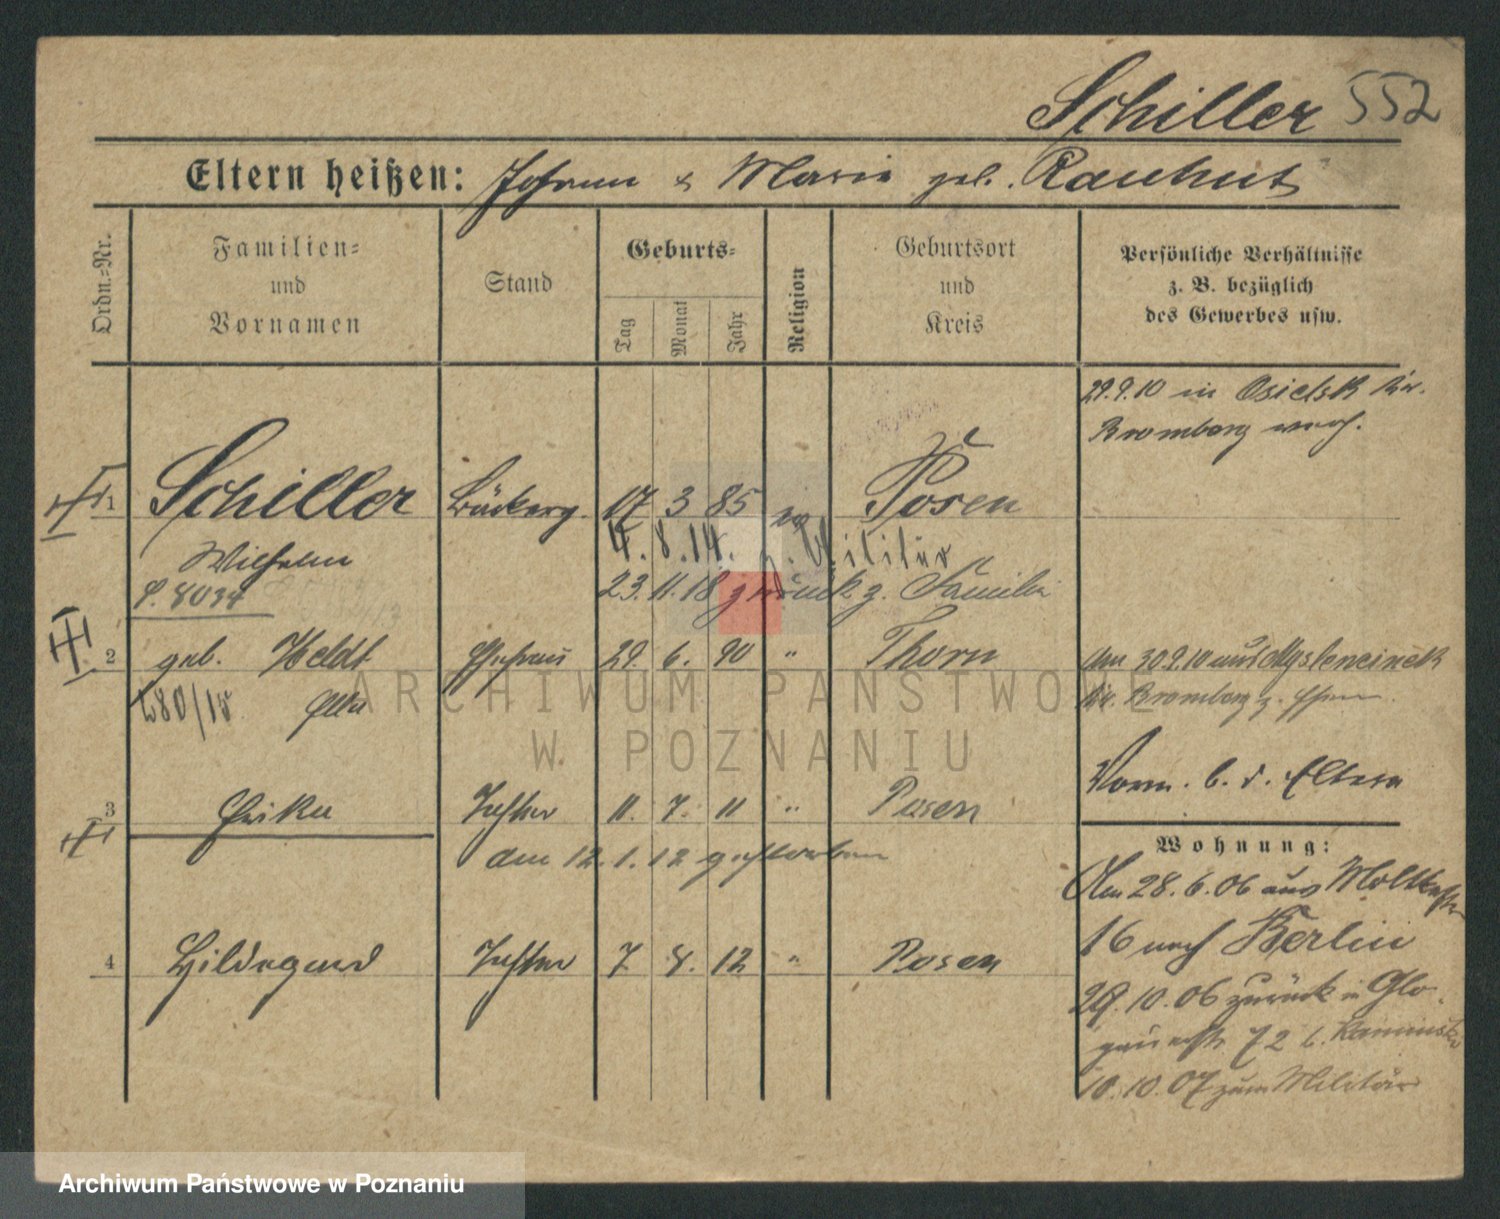 Schiller 552
Eltern heißen: Johann & Marie geb. Rauhut
Ordn.=Nr.
Familien= und Vornamen
Stand
Geburts=
Tag
Monat
Jahr
Religion
Geburtsort und Kreis
Persönliche Verhältnisse
z. B. bezüglich
des Gewerbes usw.
29.9.10 in Osielsk Kr.
Bromberg verh.
1 Schiller Bäckerg. 17 3 85 ev Posen
4.8.14. z. Militär
Wilhelm
23.11.18 zurück z. Familie
P. 8034
2 geb. Heldt Ehefrau 29. 6. 90 " Thorn
Am 30.9.10 aus
Kr. Bromberg z. Ehem.
Ella
Vorm. b. d. Eltern
3 Erika Tochter 11. 7. 11 " Posen
am 12.1.12 gestorben
Wohnung:
Am 28.6.06 aus Moltkestr
16 nach Berlin
4 Hildegard Tochter 7 8. 12 " Posen
29.10.06 zurück in Glo-
gauerstr 72 b. Kaminski
10.10.07 zum Militär
ARCHIWUM PAŃSTWOWE
W POZNANIU
Archiwum Państwowe w Poznaniu